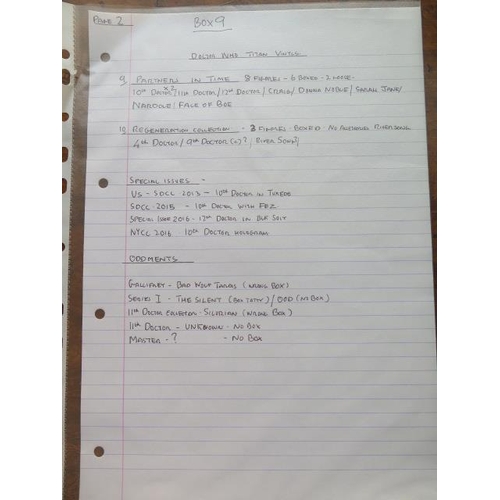 PAGE 2
BOX 9
DOCTOR WHO TITAN VINYLS
9. PARTNERS IN TIME 8 FIGURES - 6 BOXED - 2 LOOSE.
10th DOCTOR x2 / 11th DOCTOR / 12th DOCTOR / STRAX / DONNA NOBLE / SARAH JANE /
NARDOLE / FACE OF BOE
10. REGENERATION COLLECTION - 3 FIGURES - BOXED - NO RIVER SONG
4th DOCTOR / 9th DOCTOR ? / RIVER SONG
SPECIAL ISSUES -
US - SDCC - 2013 - 10th DOCTOR IN TUXEDO
SDCC - 2015 - 10th DOCTOR WITH FEZ
SPECIAL ISSUE 2016 - 12th DOCTOR IN BLK SUIT
NYCC 2016 10th DOCTOR HOLOGRAM
ODDMENTS
GALLIFREY - BAD WOLF TARDIS (WRONG BOX)
SERIES I - THE SILENT (BOX TATTY) / OOD (NO BOX)
11th DOCTOR - SILURIAN (WRONG BOX)
11th DOCTOR - UNKNOWN - NO BOX
MASTER - ? - NO BOX